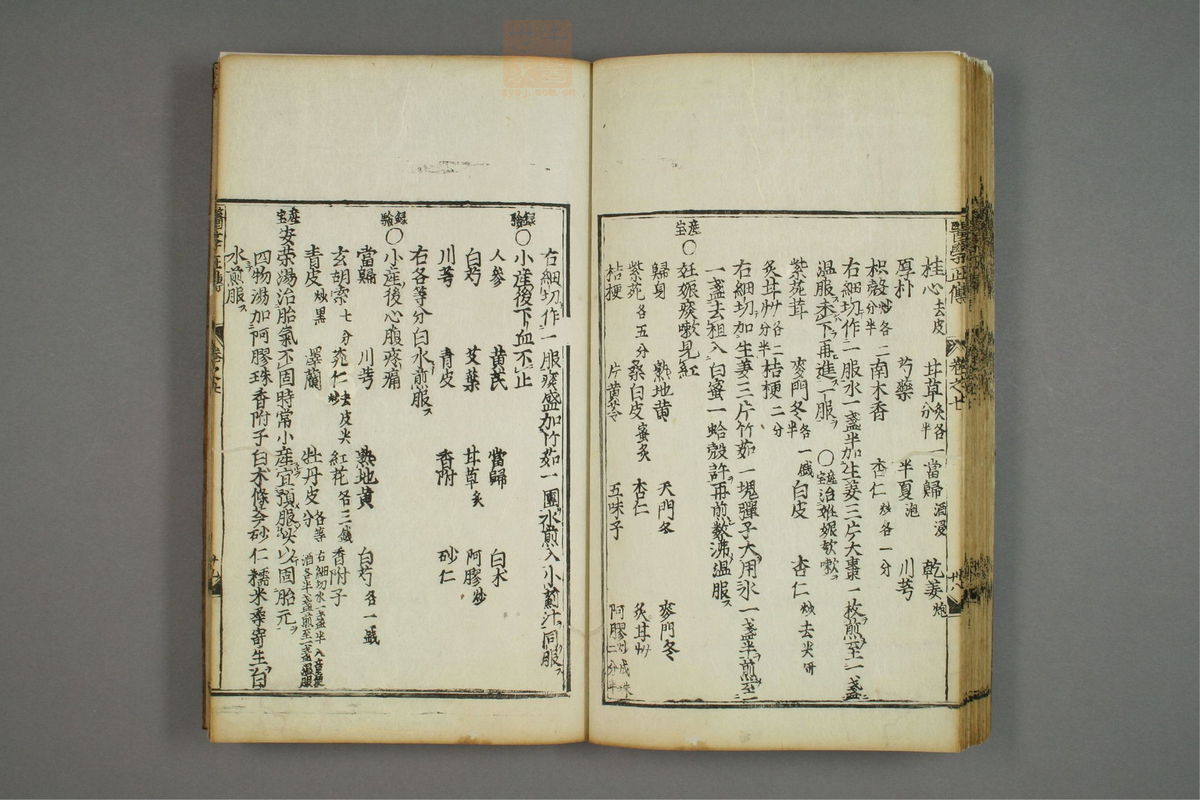 醫學正傳 卷之七
桂心去皮 甘草炙各一分半 當歸酒浸 乾姜炮
厚朴 芍藥 半夏泡 川芎
枳殼炒各二分半 南木香 杏仁炒各一分
右細切作一服水一盞半加生姜三片大棗一枚煎至一盞
溫服未下再進一服 ○産宝治姙娠欬嗽
紫菀茸 麥門冬各一錢 白皮 杏仁炒去尖研
炙甘艸各二分半 桔梗二分
右細切加生姜三片竹茹一塊彈子大用水一盞半煎至
一盞去粗入白蜜一蛤殼許再煎數沸溫服
産宝○妊娠痰嗽見紅
歸身 熟地黄 天門冬 麥門冬
紫菀各五分 桑白皮蜜炙 杏仁 炙甘艸
桔梗 片黄芩 五味子 阿膠
右細切作一服痰盛加竹茹一團水煎入小薊汁同服
録驗○小産後下血不止
人參 黄芪 當歸 白朮
白芍 艾葉 甘草炙 阿膠炒
川芎 青皮 香附 砂仁
右各等分白水煎服
録驗○小産後心腹疼痛
當歸 川芎 熟地黄 白芍各一錢
玄胡索七分 桃仁炒去皮尖 紅花各三錢 香附子
青皮炒黑 澤蘭 牡丹皮各等分 右細切水一盞半入童便酒各半盞煎至一盞溫服
産宝安荣湯治胎氣不固時常小産宜預服以固胎元
四物湯加阿膠珠香附子白朮條芩砂仁糯米桑寄生白
水煎服